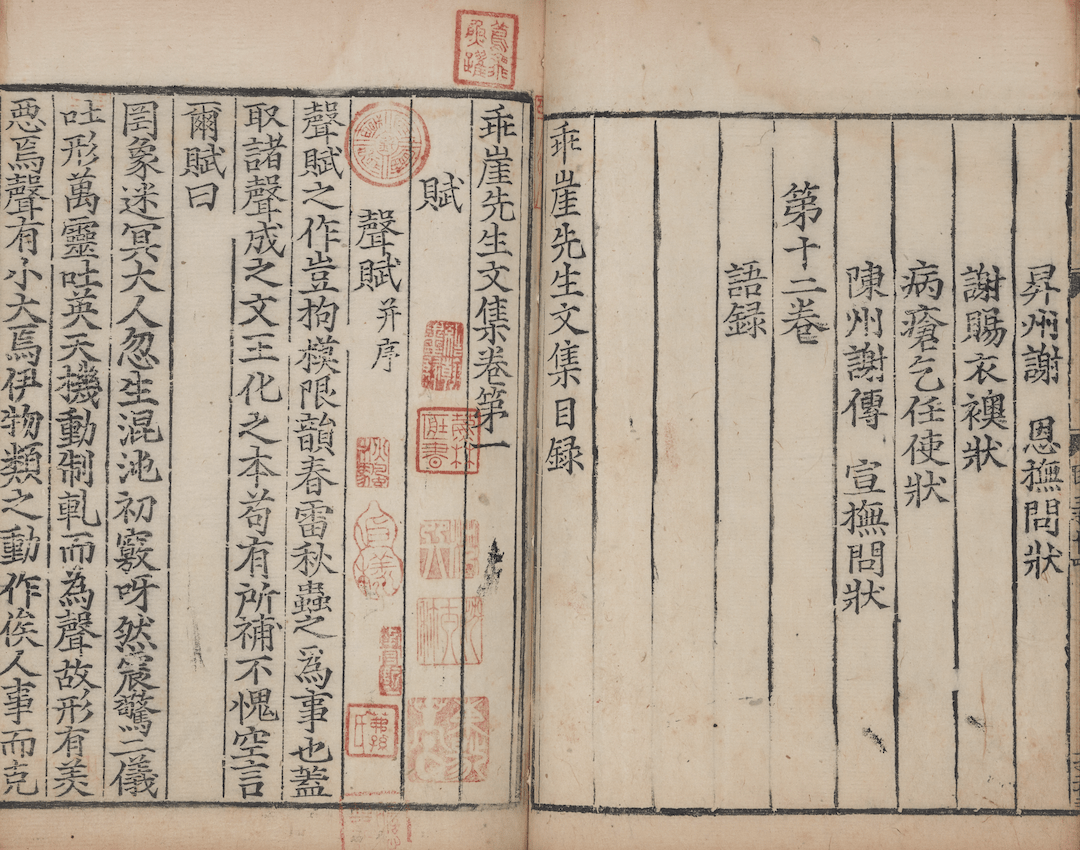 昇州謝 恩撫問狀
謝賜衣襖狀
病瘡乞任使狀
陳州謝傳 宣撫問狀
第十二卷
語録
乖崖先生文集目録
乖崖先生文集卷第一
賦
聲賦并序
聲賦之作豈拘模限韻春雷秋蟲之爲事也蓋
取諸聲成之文王化之本苟有所補不愧空言
爾賦曰
罔象迷冥大人忽生混沌初竅呀然宸驚二儀
吐形萬靈吐英天機動制軋而為聲故形有美
惡焉聲有小大焉伊物類之動作俟人事而克